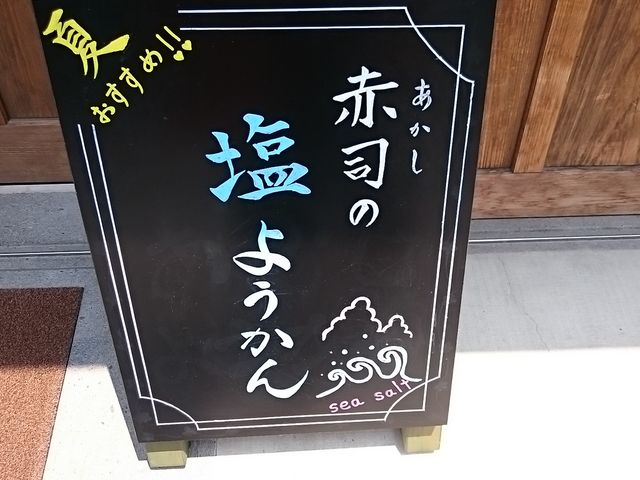 夏
おすすめ!!
あかし
赤司の
塩ようかん
sea salt